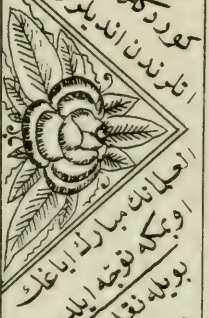 كوردكلر
اتلرندن انديلر
العلمانك مبارك اياغك
اوپمكه توجه ايلد
بويله نقل